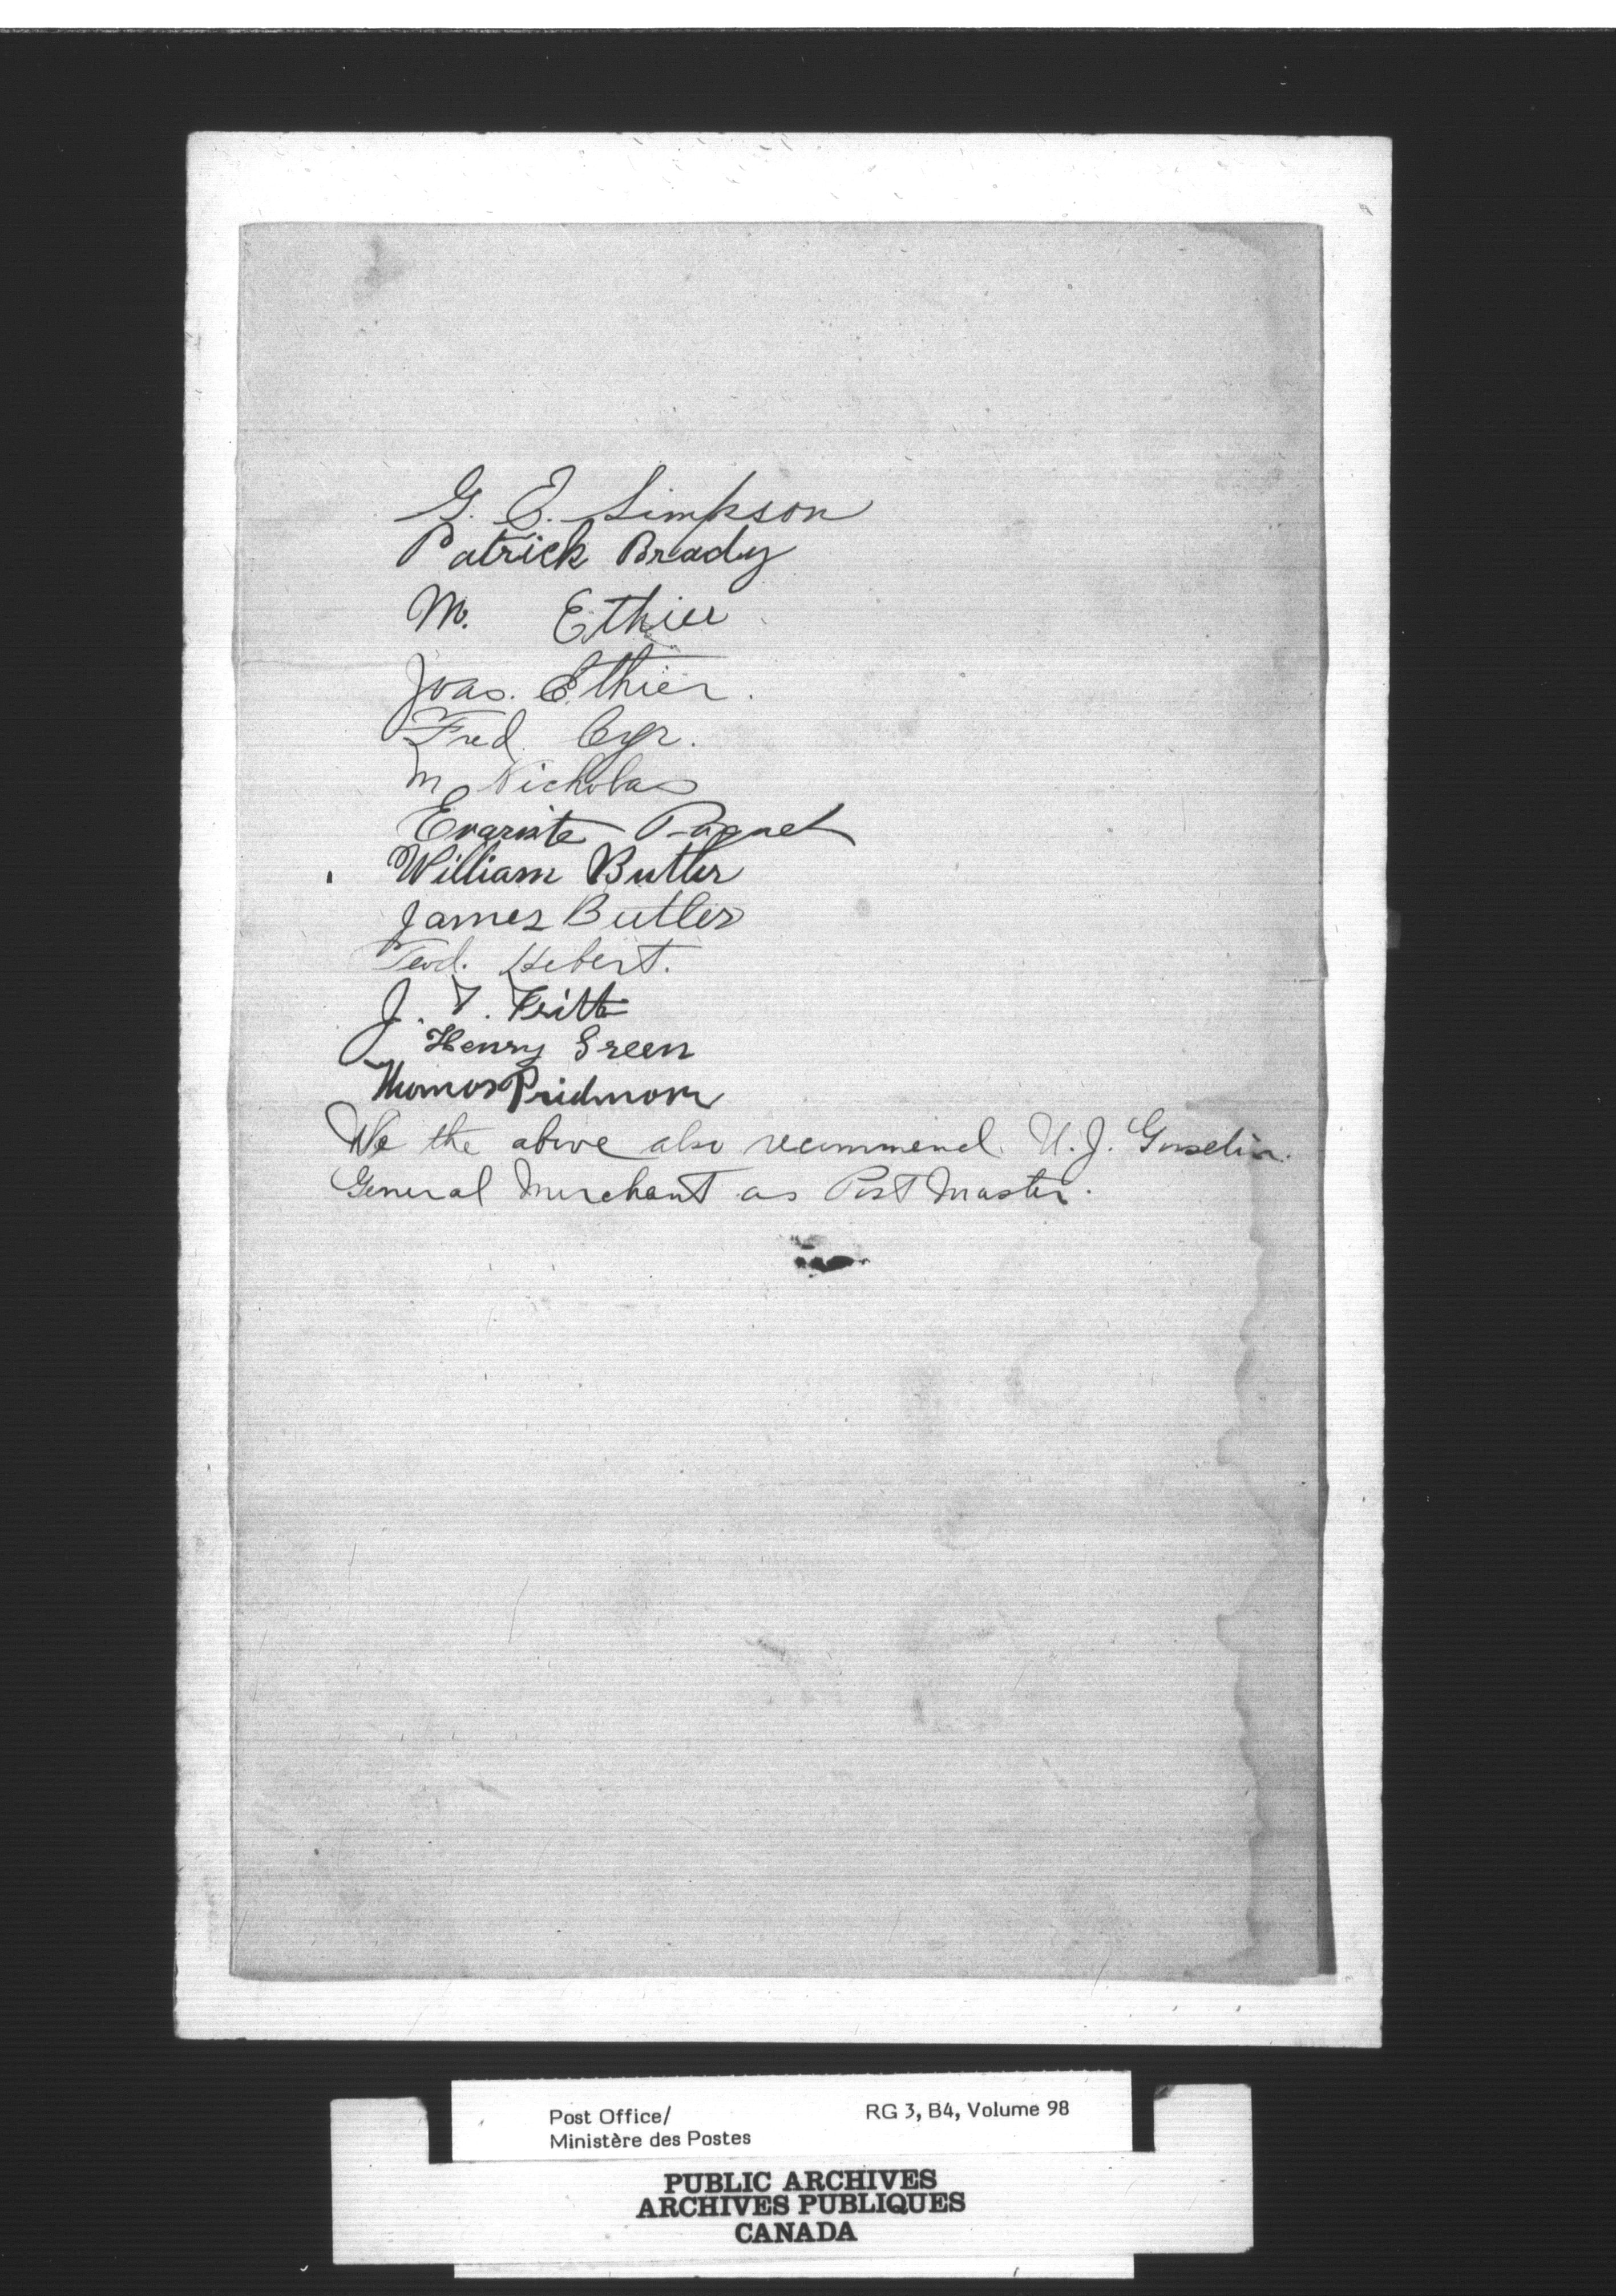 G. E. Simpson
Patrick Brady
M. Ethier
Joas. Ethier.
Fred. Cyr.
M Nicholas
Evariste Paquet
William Butler
James Butler
Teod. Hebert.
J. T.
Henry Green
Thomas Pridmore
We the above also recommend U. J. Gosselin.
General Merchant as Post Master.
Post Office/ RG 3, B4, Volume 98
Ministère des Postes
PUBLIC ARCHIVES
ARCHIVES PUBLIQUES
CANADA